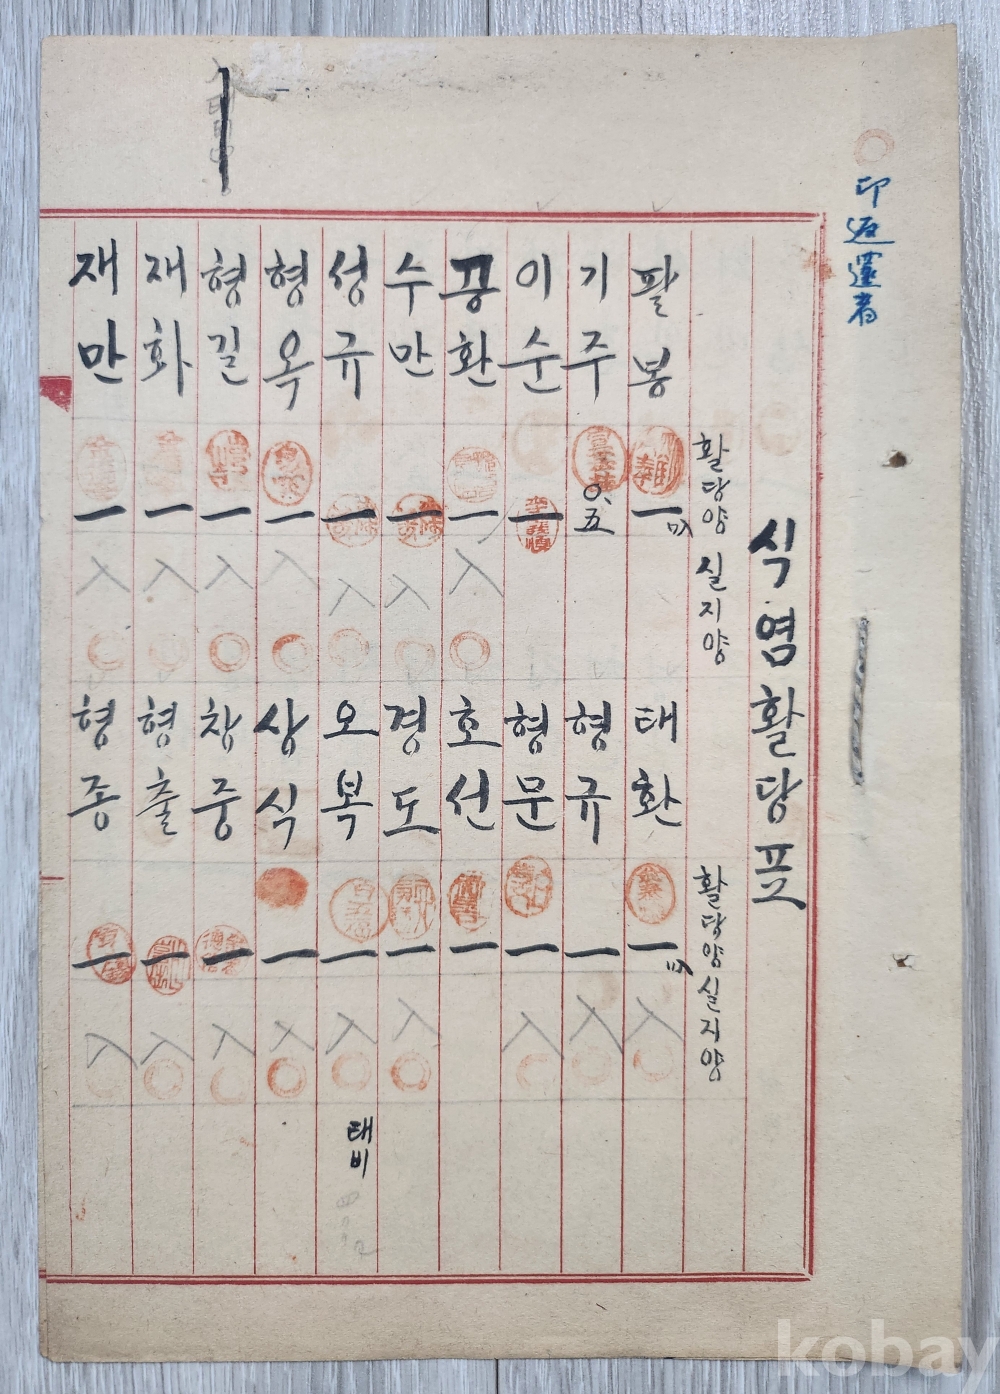 印返還者
식염활당표
활당양 실지양
활당양 실지양
팔봉
一叺
기주
０.五
이순
一
공환
一
수만
一
성규
一
형옥
一
형길
一
재화
一
재만
一
태환
一叺
형규
一
형문
一
호선
一
경도
一
오복
一
태비
상식
一
창중
一
형출
一
형종
一
kobay